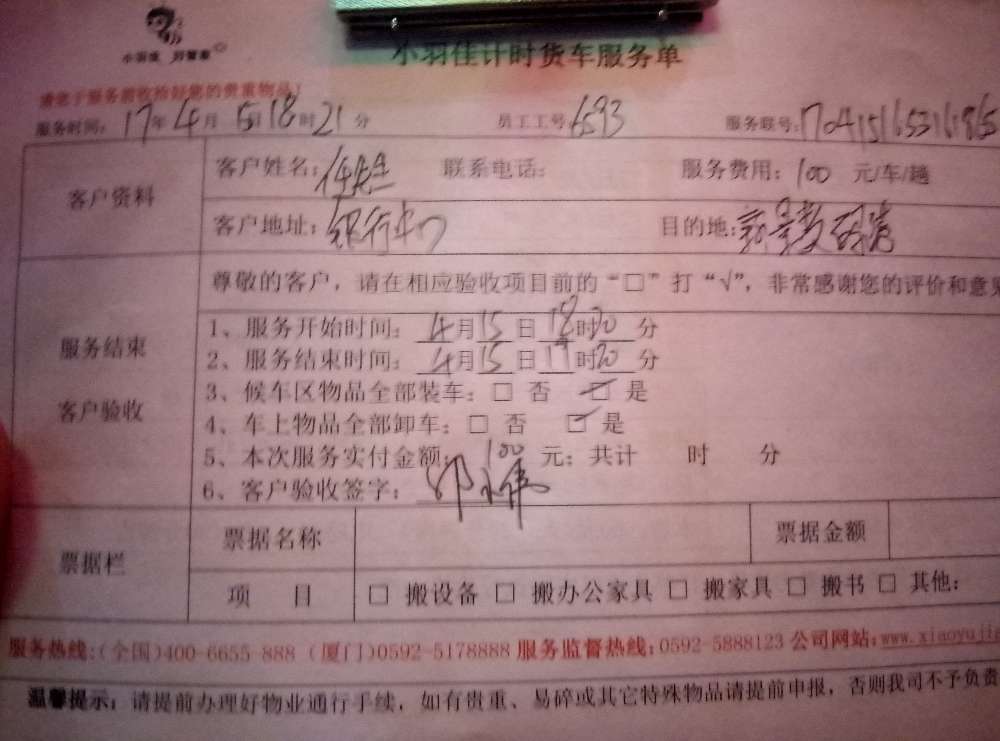 小羽佳 好管家
小羽佳计时货车服务单
请您于服务前收拾好您的贵重物品!
服务时间: 17年4月15日18时21分 员工工号: 6593 服务联号:
客户资料
客户姓名: 联系电话: 服务费用: 100 元/车/趟
客户地址: 银行中心 目的地:
服务结束
客户验收
尊敬的客户，请在相应验收项目前的“□”打“√”，非常感谢您的评价和意见
1、服务开始时间: 4月15日18时30分
2、服务结束时间: 4月15日19时20分
3、候车区物品全部装车: □ 否 ☑ 是
4、车上物品全部卸车: □ 否 ☑ 是
5、本次服务实付金额: 100 元; 共计 时 分
6、客户验收签字:
票据栏
票据名称 票据金额
项 目 □ 搬设备 □ 搬办公家具 □ 搬家具 □ 搬书 □ 其他:
服务热线:(全国)400-6655-888 (厦门)0592-5178888 服务监督热线: 0592-5888123 公司网站: www.xiaoyuji
温馨提示: 请提前办理好物业通行手续，如有贵重、易碎或其它特殊物品请提前申报，否则我司不予负责